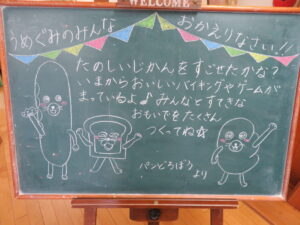 WELCOME
うめぐみのみんな おかえりなさい!!
たのしいじかんをすごせたかな?
いまからおいしいバイキングやゲームが
まっているよ♪みんなとすてきな
おもいでをたくさん
つくってね☆
パンどろぼう
より